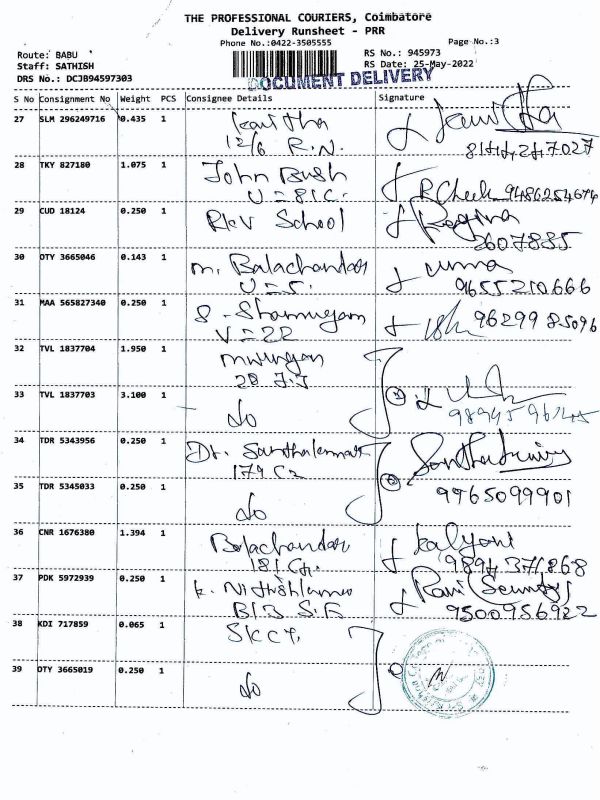 THE PROFESSIONAL COURIERS, Coimbatore
Delivery Runsheet - PRR
Phone No.:0422-3505555
Page No.:3
Route: BABU
Staff: SATHISH
DRS No.: DCJB94597303
RS No.: 945973
RS Date: 25-May-2022
DOCUMENT DELIVERY
S No Consignment No Weight PCS Consignee Details Signature
27 SLM 296249716 0.435 1 Kavitha
12/6 R.N.
28 TKY 827180 1.075 1 John Bush
U=81C. 9486254674
29 CUD 18124 0.250 1 RKV School Regina
2607885
30 OTY 3665046 0.143 1 m. Balachandar uma
U=5. 9655210666
31 MAA 565827340 0.250 1 S. Shanmugam 96299 85096
V=22
32 TVL 1837704 1.950 1 murugan
33 TVL 1837703 3.100 1 do
34 TDR 5343956 0.250 1 Dr. Santhakumar
179
35 TDR 5345033 0.250 1 do 9965099901
36 CNR 1676380 1.394 1 Balachandar Kalyani
181 9894371868
37 PDK 5972939 0.250 1 K. Ravi
B13 9500956922
38 KDI 717859 0.065 1
39 OTY 3665019 0.250 1 do